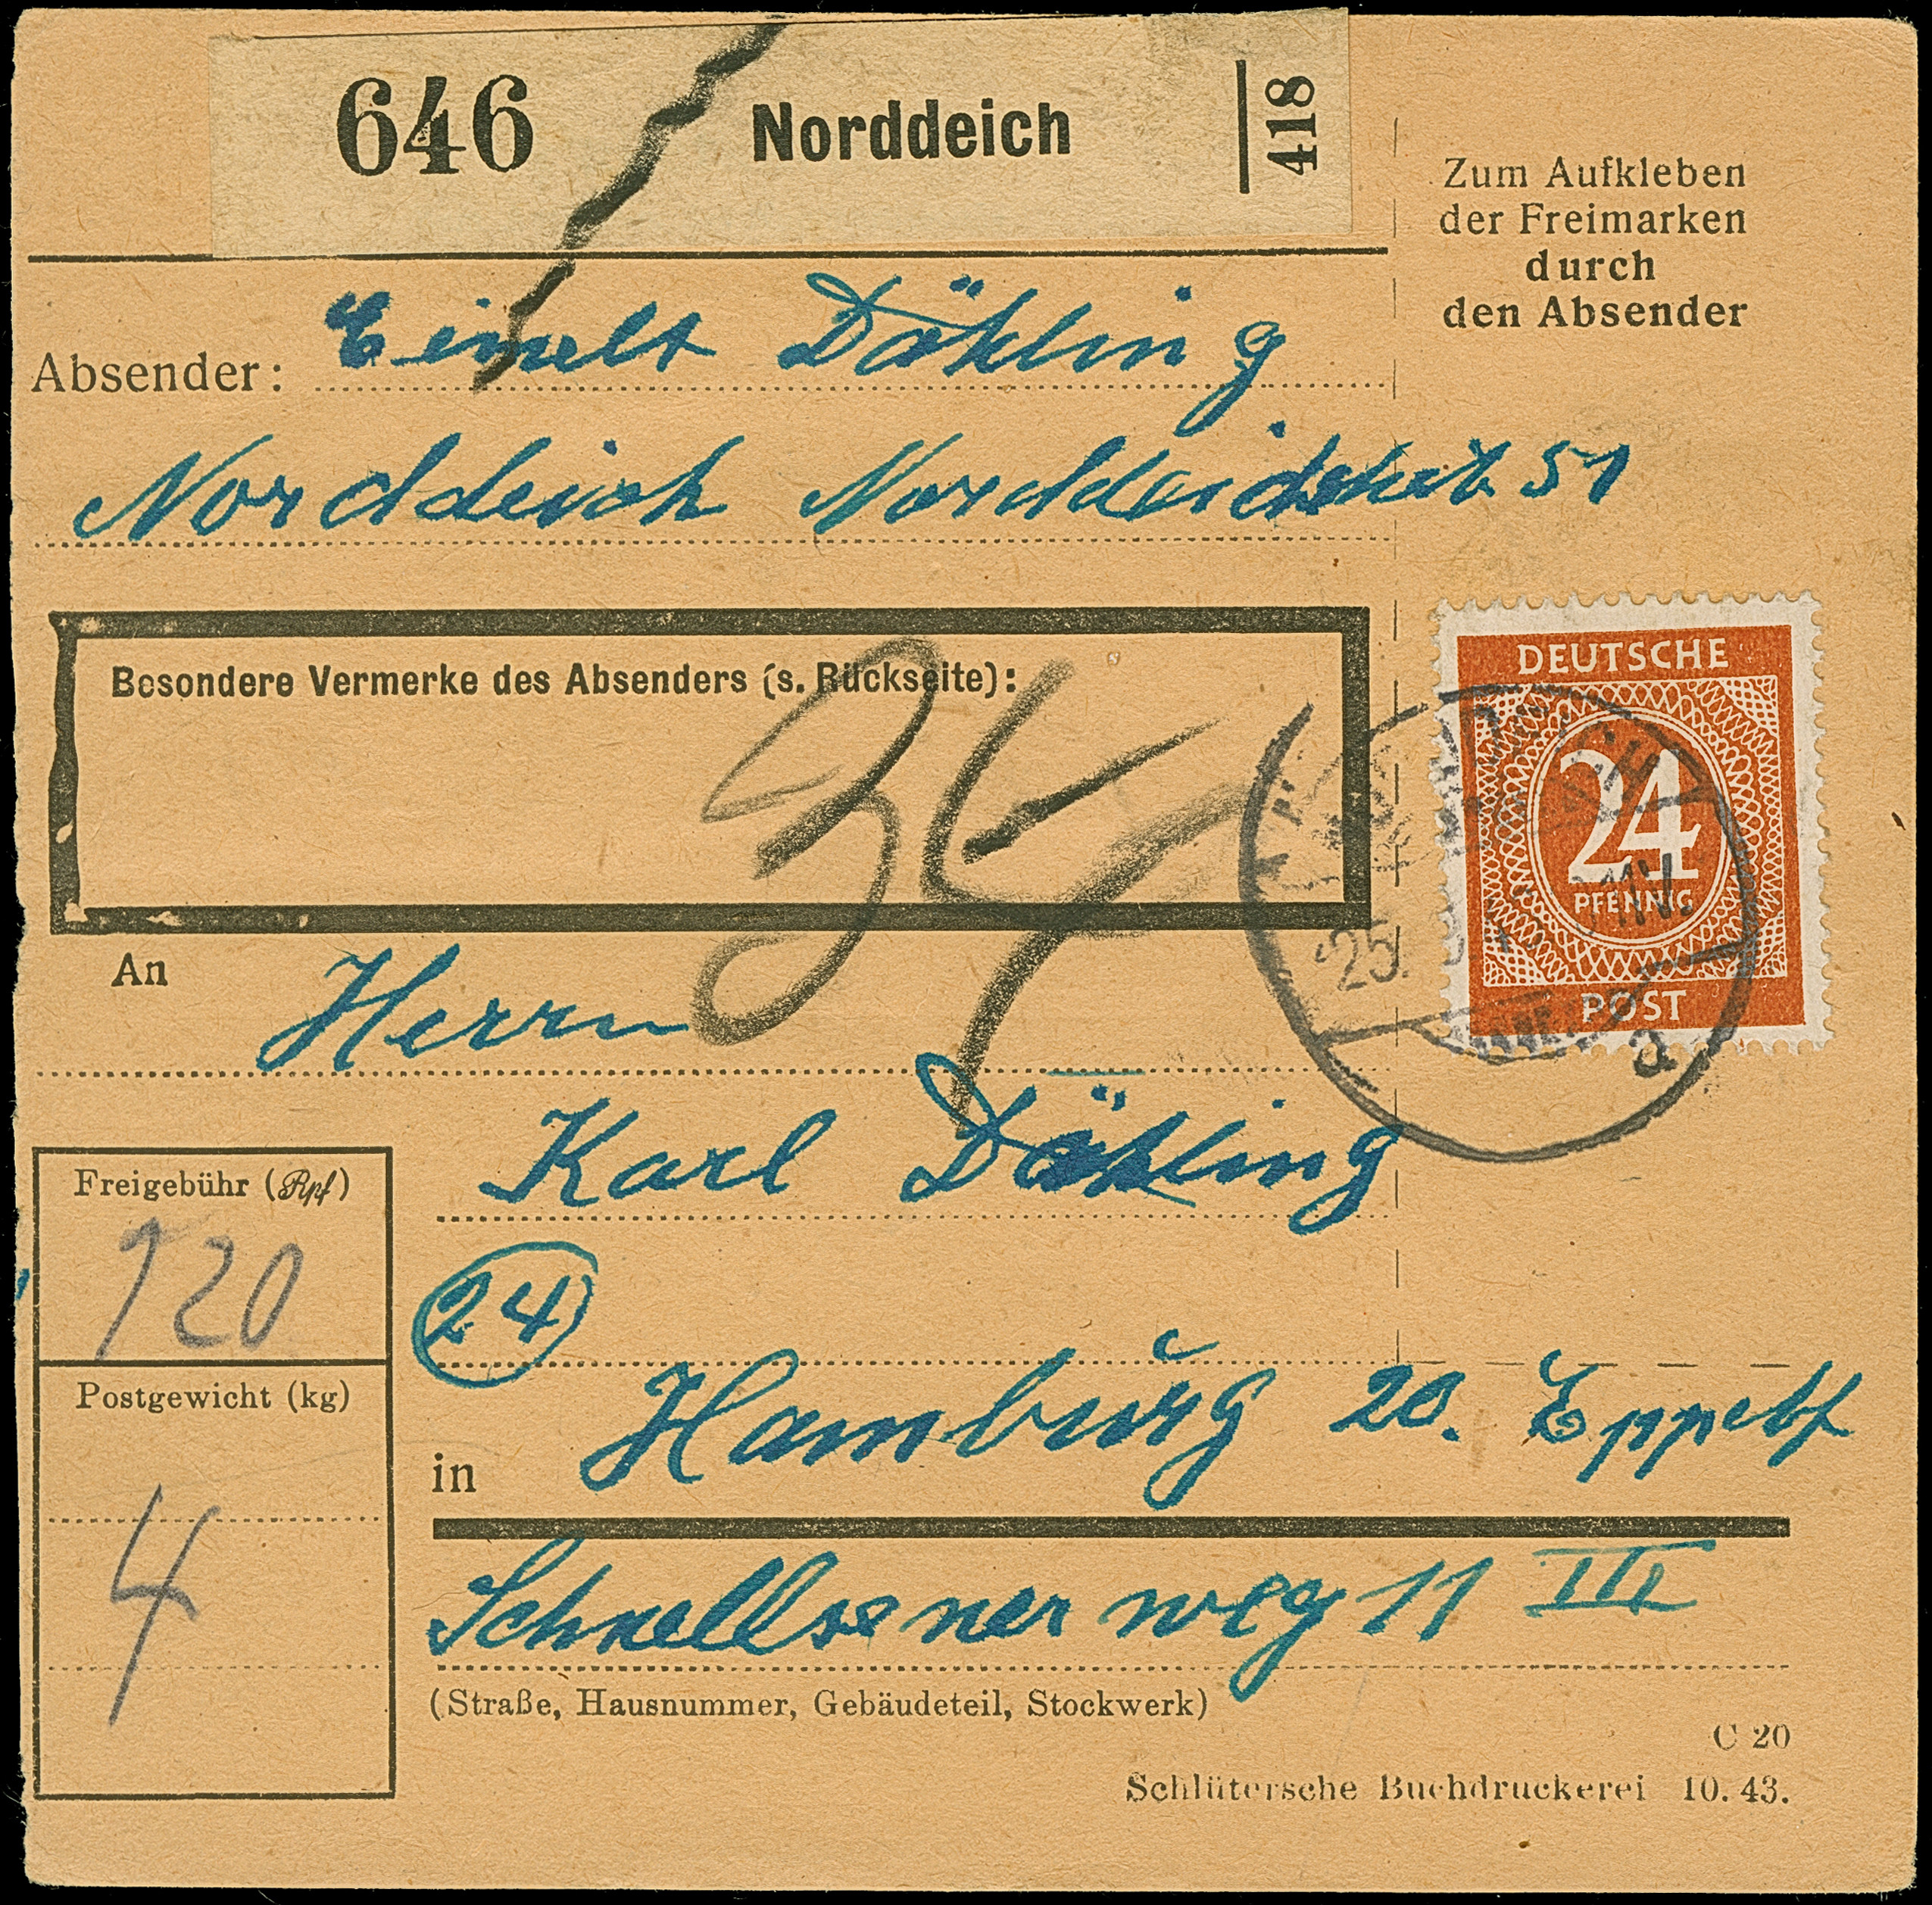 646 Norddeich 418
Zum Aufkleben
der Freimarken
durch
den Absender
Absender: Däkling
Norddeich 51
Besondere Vermerke des Absenders (s. Rückseite):
DEUTSCHE
24
PFENNIG
POST
25.
a
An Herrn
Karl Däkling
Freigebühr (Rpf)
120
24
Postgewicht (kg)
4
in Hamburg 20.
Schnellsener weg 11 III
(Straße, Hausnummer, Gebäudeteil, Stockwerk)
C 20
Schlütersche Buchdruckerei 10. 43.